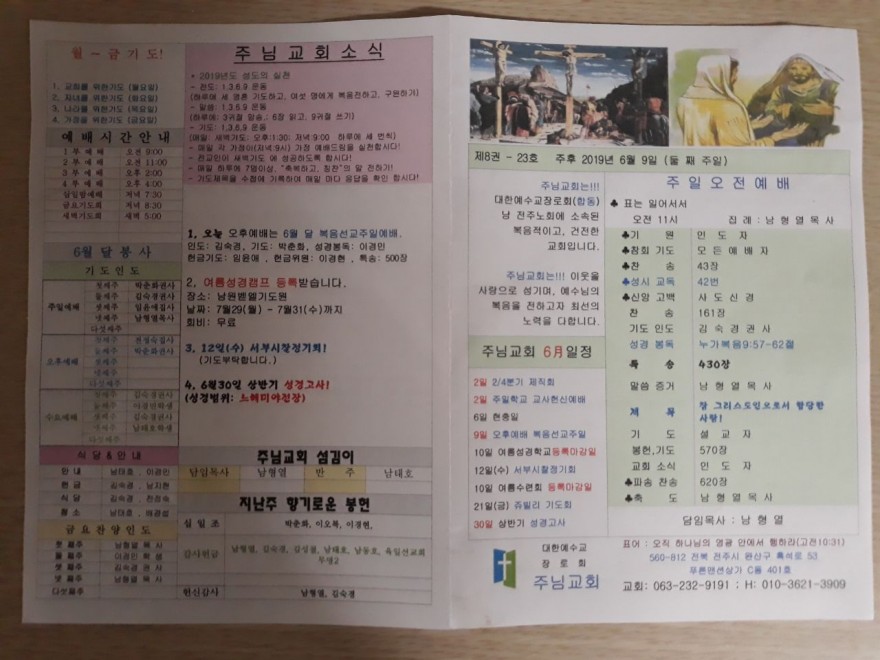 월 - 금 기 도!
1, 교회를 위한기도 (월요일)
2, 자녀를 위한기도 (화요일)
3, 나라를 위한기도 (목요일)
4, 가정을 위한기도 (금요일)
예 배 시 간 안 내
1 부 예 배 오전 9:00
2 부 예 배 오전 11:00
3 부 예 배 오후 2:00
4 부 예 배 오후 4:00
삼일밤예배 저녁 7:30
금요기도회 저녁 8:30
새벽기도회 새벽 5:00
6월 달 봉 사
기 도 인 도
주일예배
첫째주 박춘화권사
둘째주 김숙경권사
셋째주 임윤애집사
넷째주 남형열목사
다섯째주
오후예배
첫째주 전정숙집사
둘째주 박춘화권사
셋째주
넷째주
다섯째주
수요예배
첫째주 김숙경권사
둘째주 이경민학생
셋째주 김숙경권사
넷째주 남태호학생
다섯째주
식 당 & 안 내
안 내 남태호, 이경민
헌 금 김숙경, 남지현
식 당 김숙경, 전정숙
청 소 남태호,
금 요 찬 양 인 도
첫 째주 남형열 목 사
둘 째주 이경민 학 생
셋 째주 김숙경 권 사
넷 째주 남형열 목 사
다섯째주
주 님 교 회 소 식
* 2019년도 성도의 실천
- 전도: 1,3,6,9 운동
(하루에 세 영혼 기도하고, 여섯 명에게 복음전하고, 구원하기)
- 말씀: 1,3,6,9 운동
(하루에: 3귀절 암송, 6장 읽고, 9귀절 쓰기)
- 기도: 1,3,6,9 운동
(매일 새벽기도: 오후:1:30; 저녁:9:00 하루에 세 번씩)
- 매일 각 가정이(저녁:9시) 가정 예배드림을 실천합시다!
- 전교인이 새벽기도 에 성공하도록 합시다!
- 매일 하루에 7명이상, "축복하고, 칭찬"의 말 전하기!
- 기도제목을 수첩에 기록하여 매일 마다 응답을 확인 합시다!
1, 오늘 오후예배는 6월 달 복음선교주일예배.
인도: 김숙경, 기도: 박춘화, 성경봉독: 이경민
헌금기도: 임윤애, 헌금위원: 이경현, 특송: 500장
2, 여름성경캠프 등록받습니다.
장소: 남원벧엘기도원
날짜: 7월29(월) - 7월31(수)까지
회비: 무료
3, 12일(수) 서부시찰정기회!
(기도부탁합니다.)
4, 6월30일 상반기 성경고사!
(성경범위: 느헤미야전장)
주님교회 섬김이
담임목사 남형열 반 주 남태호
지난주 향기로운 봉헌
십 일 조 박춘화, 이오복, 이경현,
감사헌금 남형열, 김숙경, 김성결, 남태호, 남동호, 육일선교회
무명2
헌신감사 남형열, 김숙경
제8권 - 23호 주후 2019년 6월 9일 (둘 째 주일)
주님교회는!!!
대한예수교장로회(합동)
남 전주노회에 소속된
복음적이고, 건전한
교회입니다.
주님교회는!!! 이웃을
사랑으로 섬기며, 예수님의
복음을 전하고자 최선의
노력을 다합니다.
주님교회 6月일정
2일 2/4분기 제직회
2일 주일학교 교사헌신예배
6일 현충일
9일 오후예배 복음선교주일
10일 여름성경학교등록마감일
12일(수) 서부시찰정기회
10일 여름수련회 등록마감일
21일(금) 쥬빌리 기도회
30일 상반기 성경고사
주 일 오 전 예 배
♣ 표는 일어서서
오전 11시 집 례 : 남 형 열 목 사
♣기 원 인 도 자
♣참회 기도 모 든 예 배 자
♣찬 송 43장
♣성시 교독 42번
♣신앙 고백 사 도 신 경
찬 송 161장
기도 인도 김 숙 경 권 사
성경 봉독 누가복음9:57-62절
특 송 430장
말씀 증거 남 형 열 목 사
제 목 참 그리스도인으로서 합당한
사람!
기 도 설 교 자
봉헌,기도 570장
교회 소식 인 도 자
♣파송 찬송 620장
♣축 도 남 형 열 목 사
담임목사 : 남 형 열
대한예수교
장 로 회
주님교회
표어 : 오직 하나님의 영광 안에서 행하라(고전10:31)
560-812 전북 전주시 완산구 흑석로 53
푸른맨션상가 C동 401호
교회: 063-232-9191 ; H: 010-3621-3909